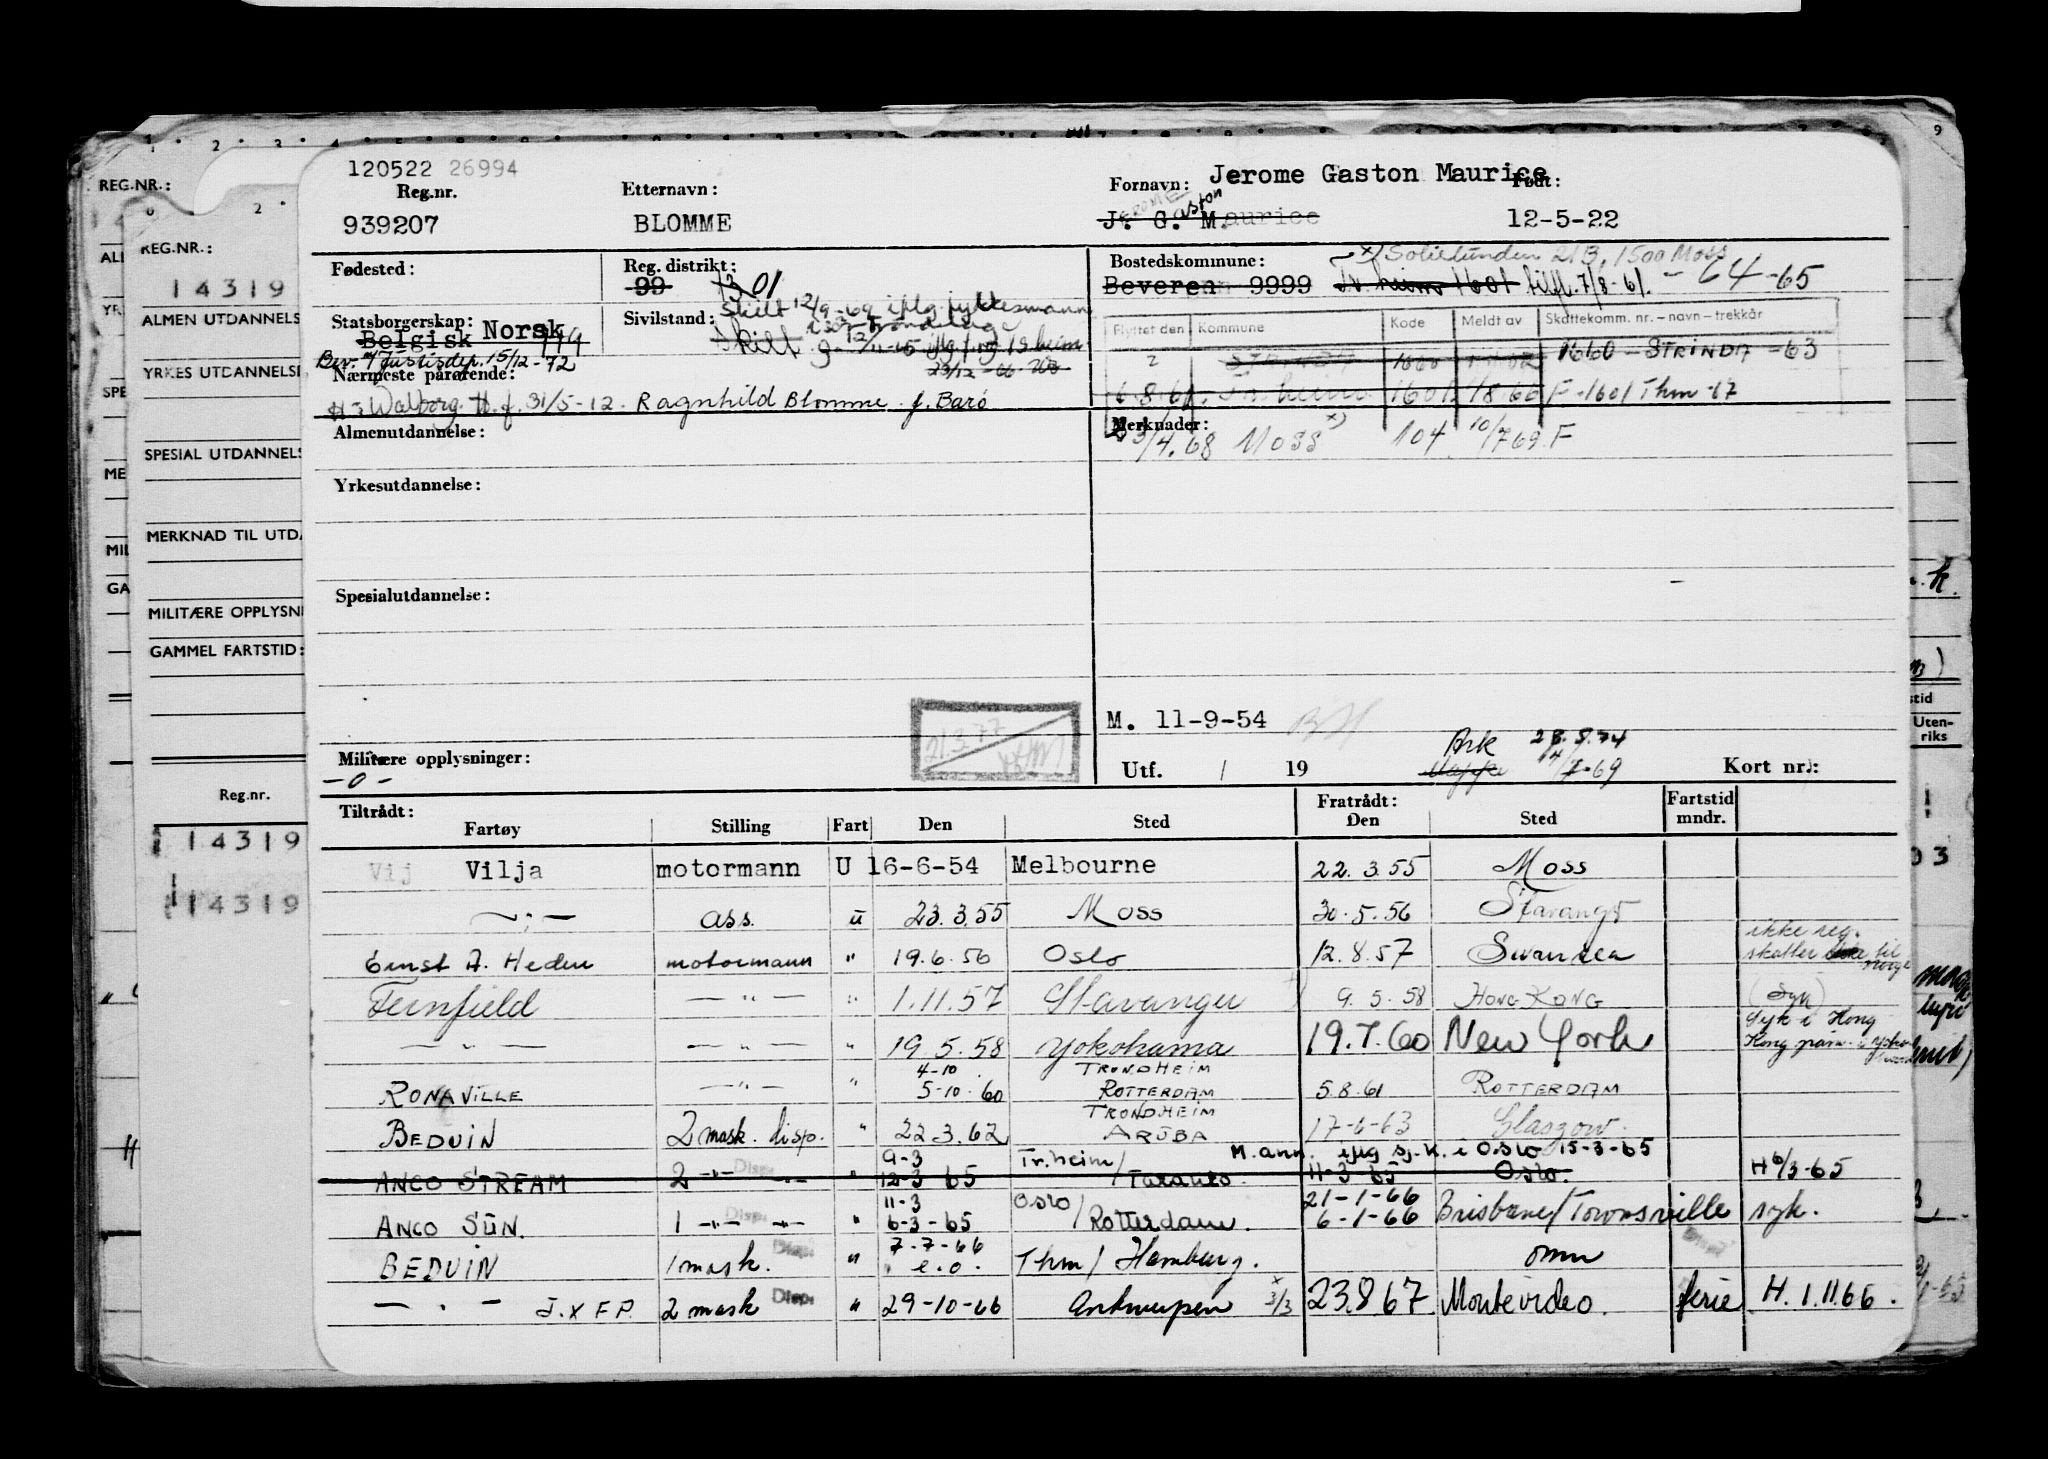 120522 26994
Reg.nr.
939207
Etternavn:
BLOMME
Fornavn: Jerome Gaston Maurice
J. G. Maurice
Gaston
Født:
12-5-22
Fødested:
Reg. distrikt:
99 1301
Bostedskommune:
x) Solielunden 21B, 1500 Moss
Beveren 9999 Tr.heim 1601 tilfl. 7/8-61. - 64-65
Statsborgerskap:
Belgisk Norsk
Bev. af Justisdep. 15/12-72
Sivilstand:
Skilt 12/9-69 iflg fylkesmann
Skilt
Flyttet den Kommune Kode Meldt av Skattekomm. nr. – navn – trekkår
1660 1660 - STRINDA - 63
6.8.61. Tr.heim 1601 F-1601 Thm-67
Nærmeste pårørende:
f. 31/5-12. Ragnhild Blomme f. Barø
Almenutdannelse:
Merknader:
3/4.68 Moss x) 104 10/7 69. F
Yrkesutdannelse:
Spesialutdannelse:
M. 11-9-54
21.3.77
Militære opplysninger:
-0-
Utf. / 19
Ark 28.8.74
Mappe
Kort nr.:
Tiltrådt:
Fartøy Stilling Fart Den Sted
Fratrådt:
Den Sted
Fartstid
mndr.
Vij Vilja motormann U 16-6-54 Melbourne 22.3.55 Moss
—"— ass. u 23.3.55 Moss 30.5.56 Stavanger
Ernst A. Heden motormann " 19.6.56 Oslo 12.8.57 Swansea ikke reg. skatter til Norge
Fernfield —"— " 1.11.57 Stavanger 9.5.58 HONG KONG (Syk)
—"— —"— " 19.5.58 Yokohama 19.7.60 New York Syk i Hong Kong
4-10 TRONDHEIM
RONAVILLE —"— " 5-10-60 ROTTERDAM 5.8.61 ROTTERDAM
TRONDHEIM
BEDUIN 2 mask. disp. " 22.3.62 ARUBA 17-6-63 Glasgow.
9-3 Tr.heim/ M. ann. iflg sj.k. i Oslo 15-3-65
ANCO STREAM 2 —"— Disp. —"— " 12-3-65 Taranto. 11-3 65 Oslo. H 6/3-65
11-3 Oslo/ 21-1-66
ANCO SUN. 1 —"— Disp. —"— " 6-3-65 Rotterdam. 6-1-66 Brisbane/Townsville syk.
7-7-66
BEDUIN 1 mask. Disp. " e.o. Thm/ Hamburg. omm
—"— J. X F P. 2 mask Disp. " 29-10-66 Antwerpen x 3/3 23.8.67 Montevideo. ferie H. 1.11.66.
REG.NR.:
REG.NR.:
14319
ALMEN UTDANNELS
YRKES UTDANNELSE
SPESIAL UTDANNELS
MERKNAD TIL UTD
MILITÆRE OPPLYSN
GAMMEL FARTSTID:
Reg.nr.
14319
14319
Uten-
riks